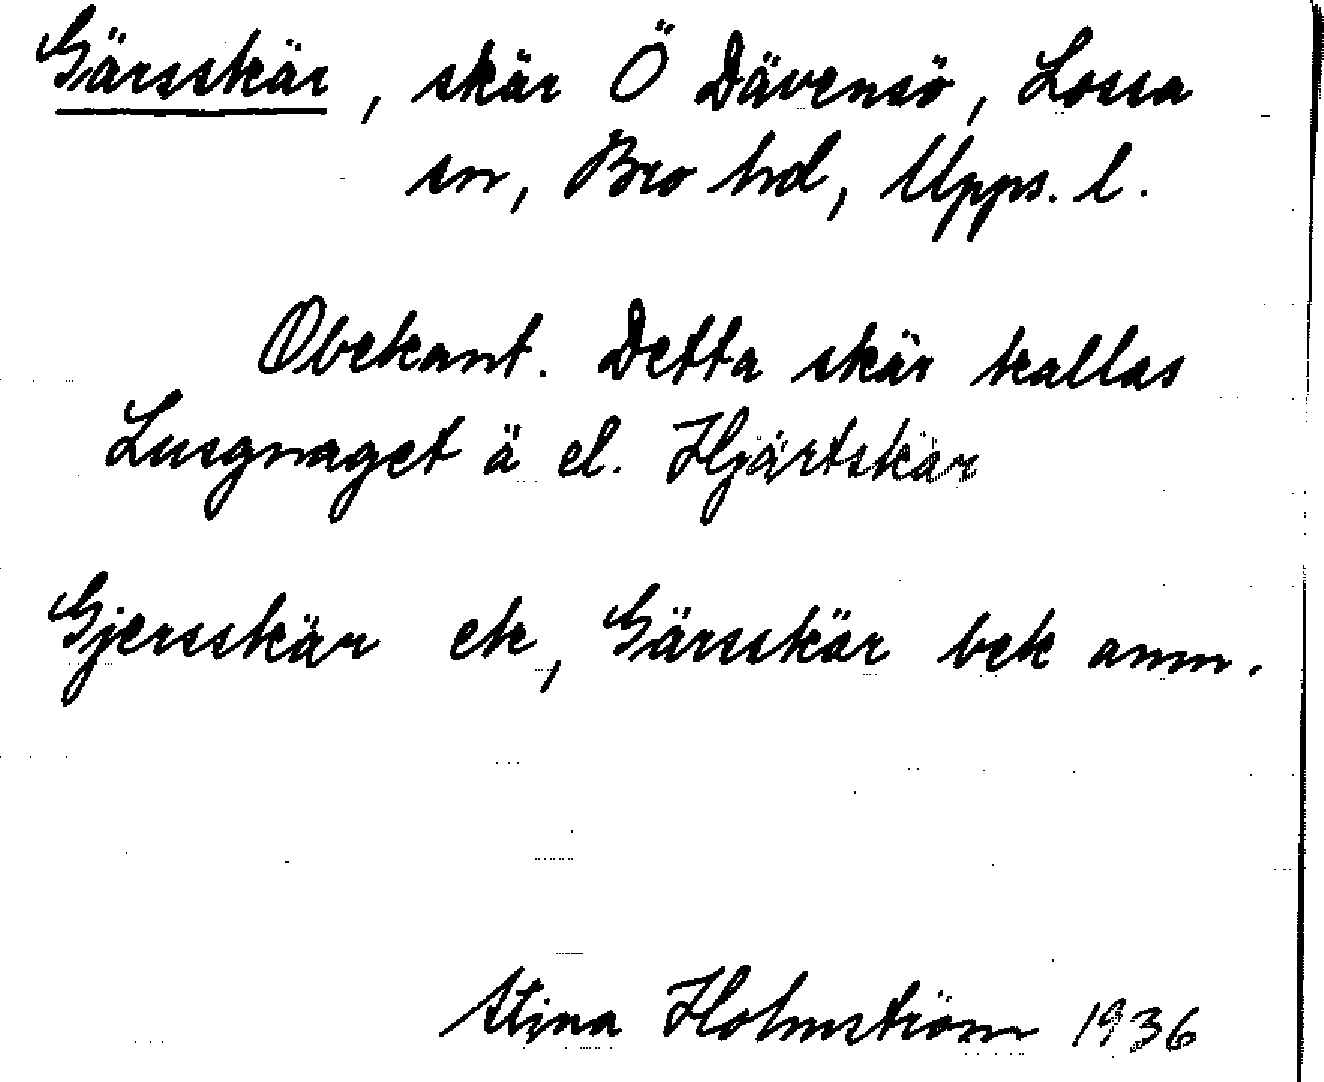 Gärsskär, skär Ö Dävensö, Lossa
sn, Bro hd, Upps. l.
Obekant. Detta skär kallas
Lusgnaget ä el. Hjärtskär
Gjersskär ek, Gärsskär bek anm.
Stina Holmström 1936